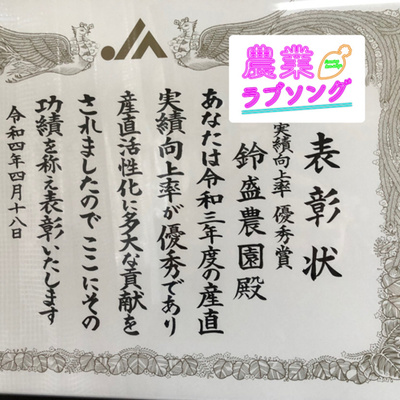 農業
ラブソング
表彰状
実績向上率 優秀賞
鈴盛農園殿
あなたは令和三年度の産直
実績向上率が優秀であり
産直活性化に多大な貢献を
されましたのでここにその
功績を称え表彰いたします
令和四年四月十八日
JA